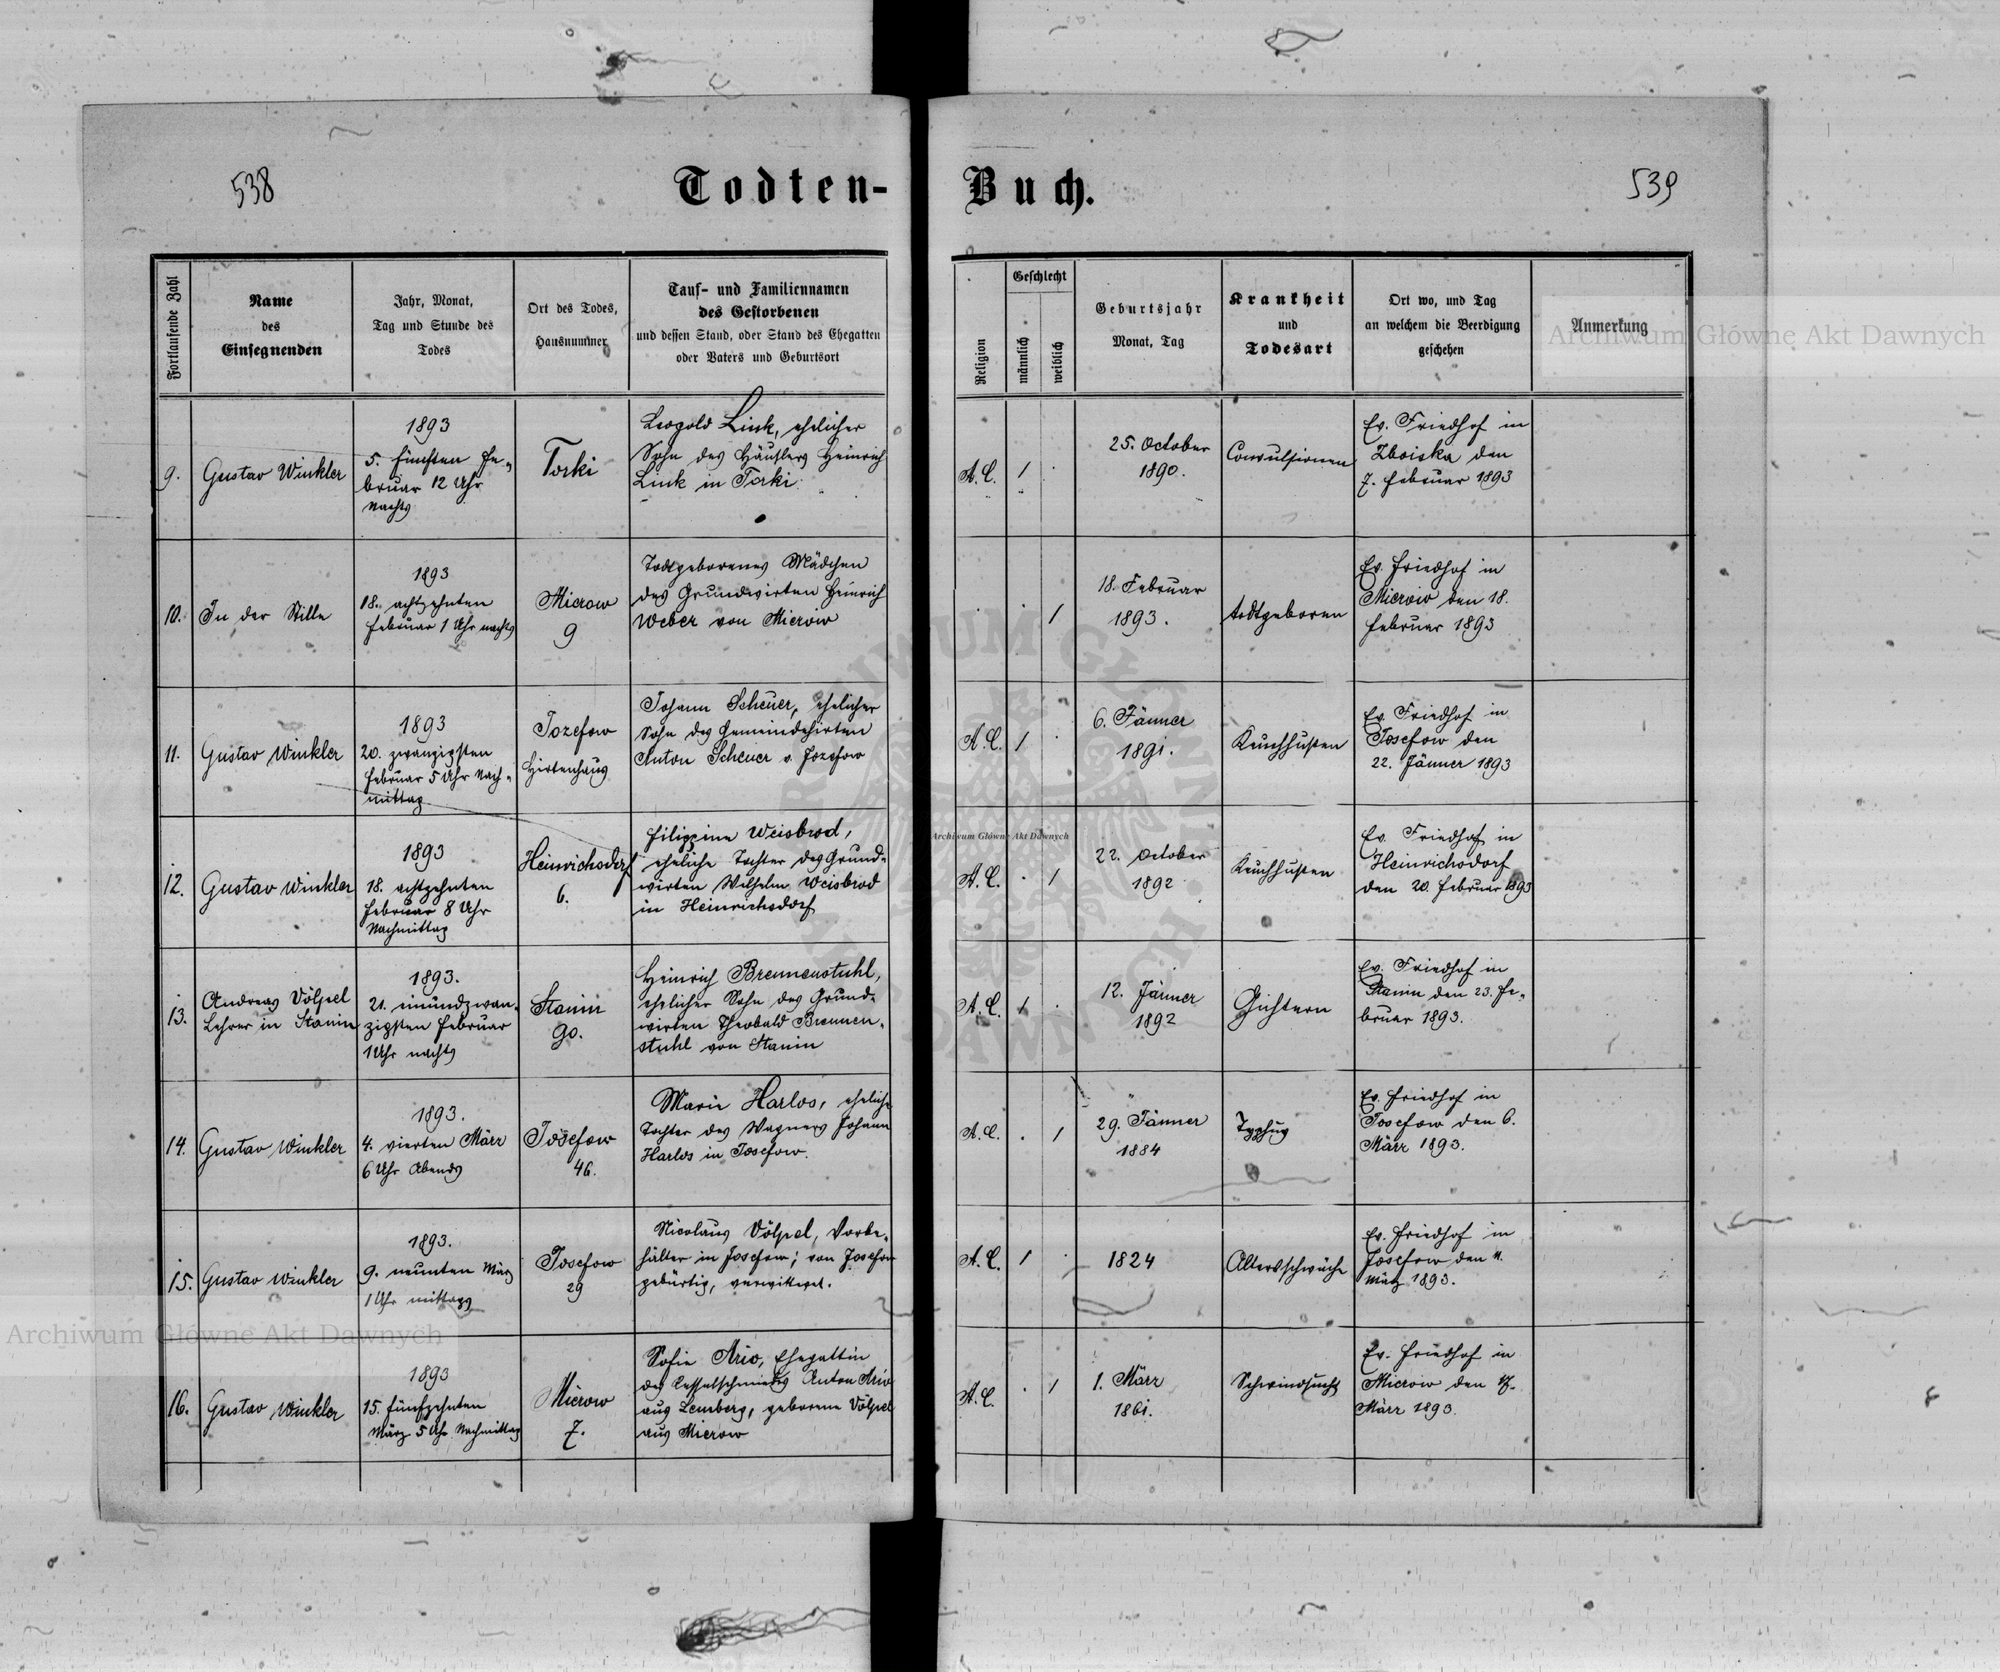 538
Todten-
Buch.
539
Fortlaufende Zahl
Name
des
Einsegnenden
Jahr, Monat,
Tag und Stunde des
Todes
Ort des Todes,
Hausnummer
Tauf- und Familiennamen
des Gestorbenen
und dessen Stand, oder Stand des Ehegatten
oder Vaters und Geburtsort
Religion
Geschlecht
männlich
weiblich
Geburtsjahr
Monat, Tag
Krankheit
und
Todesart
Ort wo, und Tag
an welchem die Beerdigung
geschehen
Anmerkung
Archiwum Główne Akt Dawnych
9.
Gustav Winkler
1893
5. fünften Fe-
bruar 12 Uhr
Nachts
Torki
Leopold Link, ehelicher
Sohn des Häuslers Heinrich
Link in Torki
A. C.
1
25. October
1890.
Convulsionen
Ev. Friedhof in
Zboiska den
7. Februar 1893
10.
In der Stille
1893
18. achtzehnten
Februar 1 Uhr nachts
Mierow
9
Todtgeborenes Mädchen
des Grundwirten Heinrich
Weber von Mierow
1
18. Februar
1893.
todtgeboren
Ev. Friedhof in
Mierow den 18.
Februar 1893
11.
Gustav Winkler
1893
20. zwanzigsten
Februar 5 Uhr Nach-
mittag
Jozefow
Hirtenhaus
Johann Scheuer, ehelicher
Sohn des Gemeindehirten
Anton Scheuer v. Jozefow
A. C.
1
6. Jänner
1891.
Keuchhusten
Ev. Friedhof in
Josefow den
22. Jänner 1893
12.
Gustav Winkler
1893
18. achtzehnten
Februar 8 Uhr
Nachmittag
Heinrichsdorf
6.
Filippine Weisbrod,
eheliche Tochter des Grund-
wirten Wilhelm Weisbrod
in Heinrichsdorf
A. C.
1
22. October
1892
Keuchhusten
Ev. Friedhof in
Heinrichsdorf
den 20. Februar 1893
13.
Andreas Völpel
Lehrer in Stanin
1893.
21. einundzwan-
zigsten Februar
1 Uhr nachts
Stanin
90.
Heinrich Brennenstuhl,
ehelicher Sohn des Grund-
wirten Theobald Brennen-
stuhl von Stanin
A. C.
1
12. Jänner
1892
Gichtern
Ev. Friedhof in
Stanin den 23. Fe-
bruar 1893.
14.
Gustav Winkler
1893.
4. vierten März
6 Uhr Abends
Josefow
46.
Marie Harlos, eheliche
Tochter des Wagners Johann
Harlos in Josefow.
A. C.
1
29. Jänner
1884
Typhus
Ev. Friedhof in
Josefow den 6.
März 1893.
15.
Gustav Winkler
1893.
9. neunten März
1 Uhr mittags
Josefow
29
Nicolaus Völpel, Vorbe-
hälter in Josefow; von Josefow
gebürtig, verwitwet.
A. C.
1
1824
Altersschwäche
Ev. Friedhof in
Josefow den 11.
März 1893.
16.
Gustav Winkler
1893
15. fünfzehnten
März 5 Uhr Nachmittag
Mierow
7.
Sofie Ario, Ehegattin
des Kesselschmieds Anton Ario
aus Lemberg, geborene Völpel
aus Mierow
A. C.
1
1. März
1861.
Schwindsucht
Ev. Friedhof in
Mierow den 17.
März 1893.
Archiwum Główne Akt Dawnych
Archiwum Główne Akt Dawnych